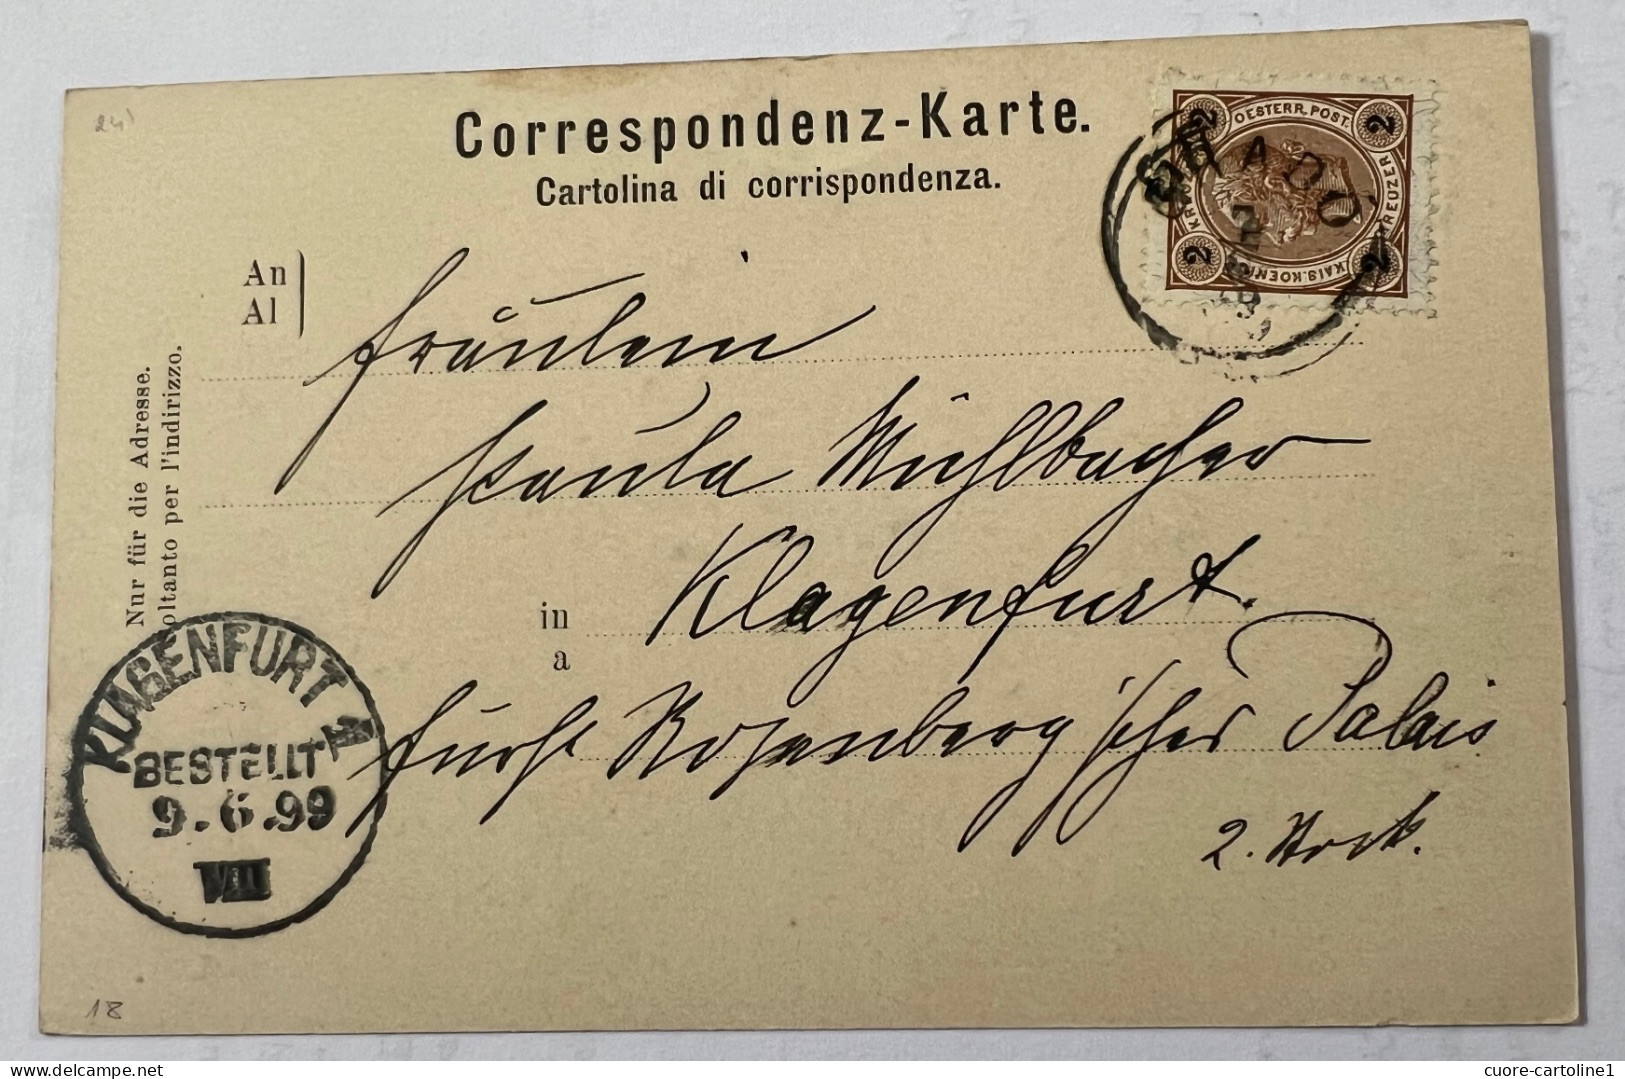 24)
Correspondenz-Karte.
Cartolina di corrispondenza.
2 OESTERR. POST. 2
KREUZER
2 KAIS. KOENIGL. 2
GRADO
An
Al
Nur für die Adresse.
Soltanto per l'indirizzo.
Fräulein
Paula Mühlbacher
in
a
Klagenfurt.
Fürst Rosenberg'scher Palais
2. Stock.
KLAGENFURT 1
BESTELLT
9.6.99
VIII
18
Delcampe.net
cuore-cartoline1